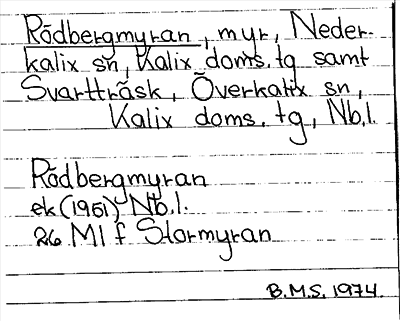 Rödbergmyran, myr, Neder-
kalix sn, Kalix doms. tg samt
Svartträsk, Överkalix sn,
Kalix doms. tg, Nb.l.
Rödbergmyran
ek (1951) Nb.l.
26 MI f Stormyran
B.M.S. 1974